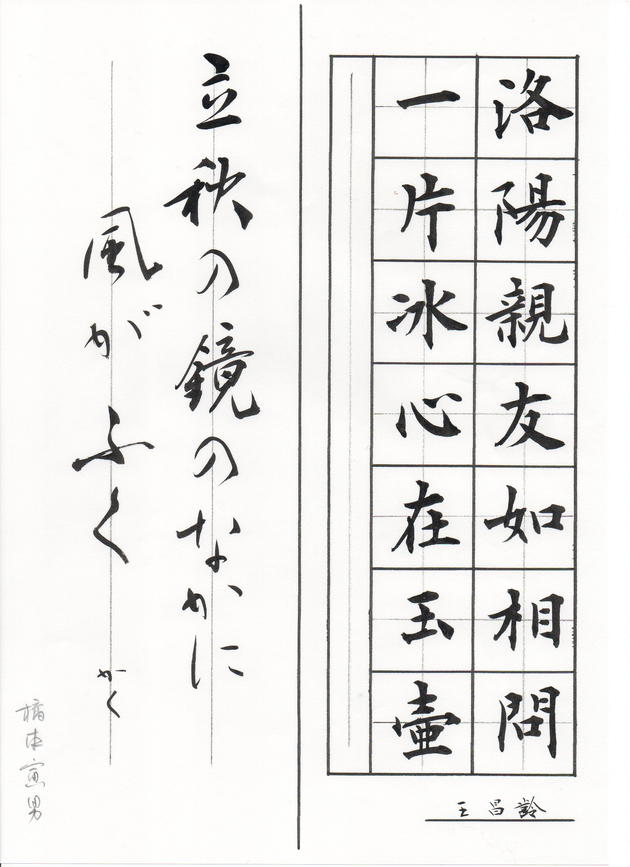 洛陽親友如相問
一片冰心在玉壷
王昌齢
立秋の鏡のなかに
風がふく
かく
橋本寅男